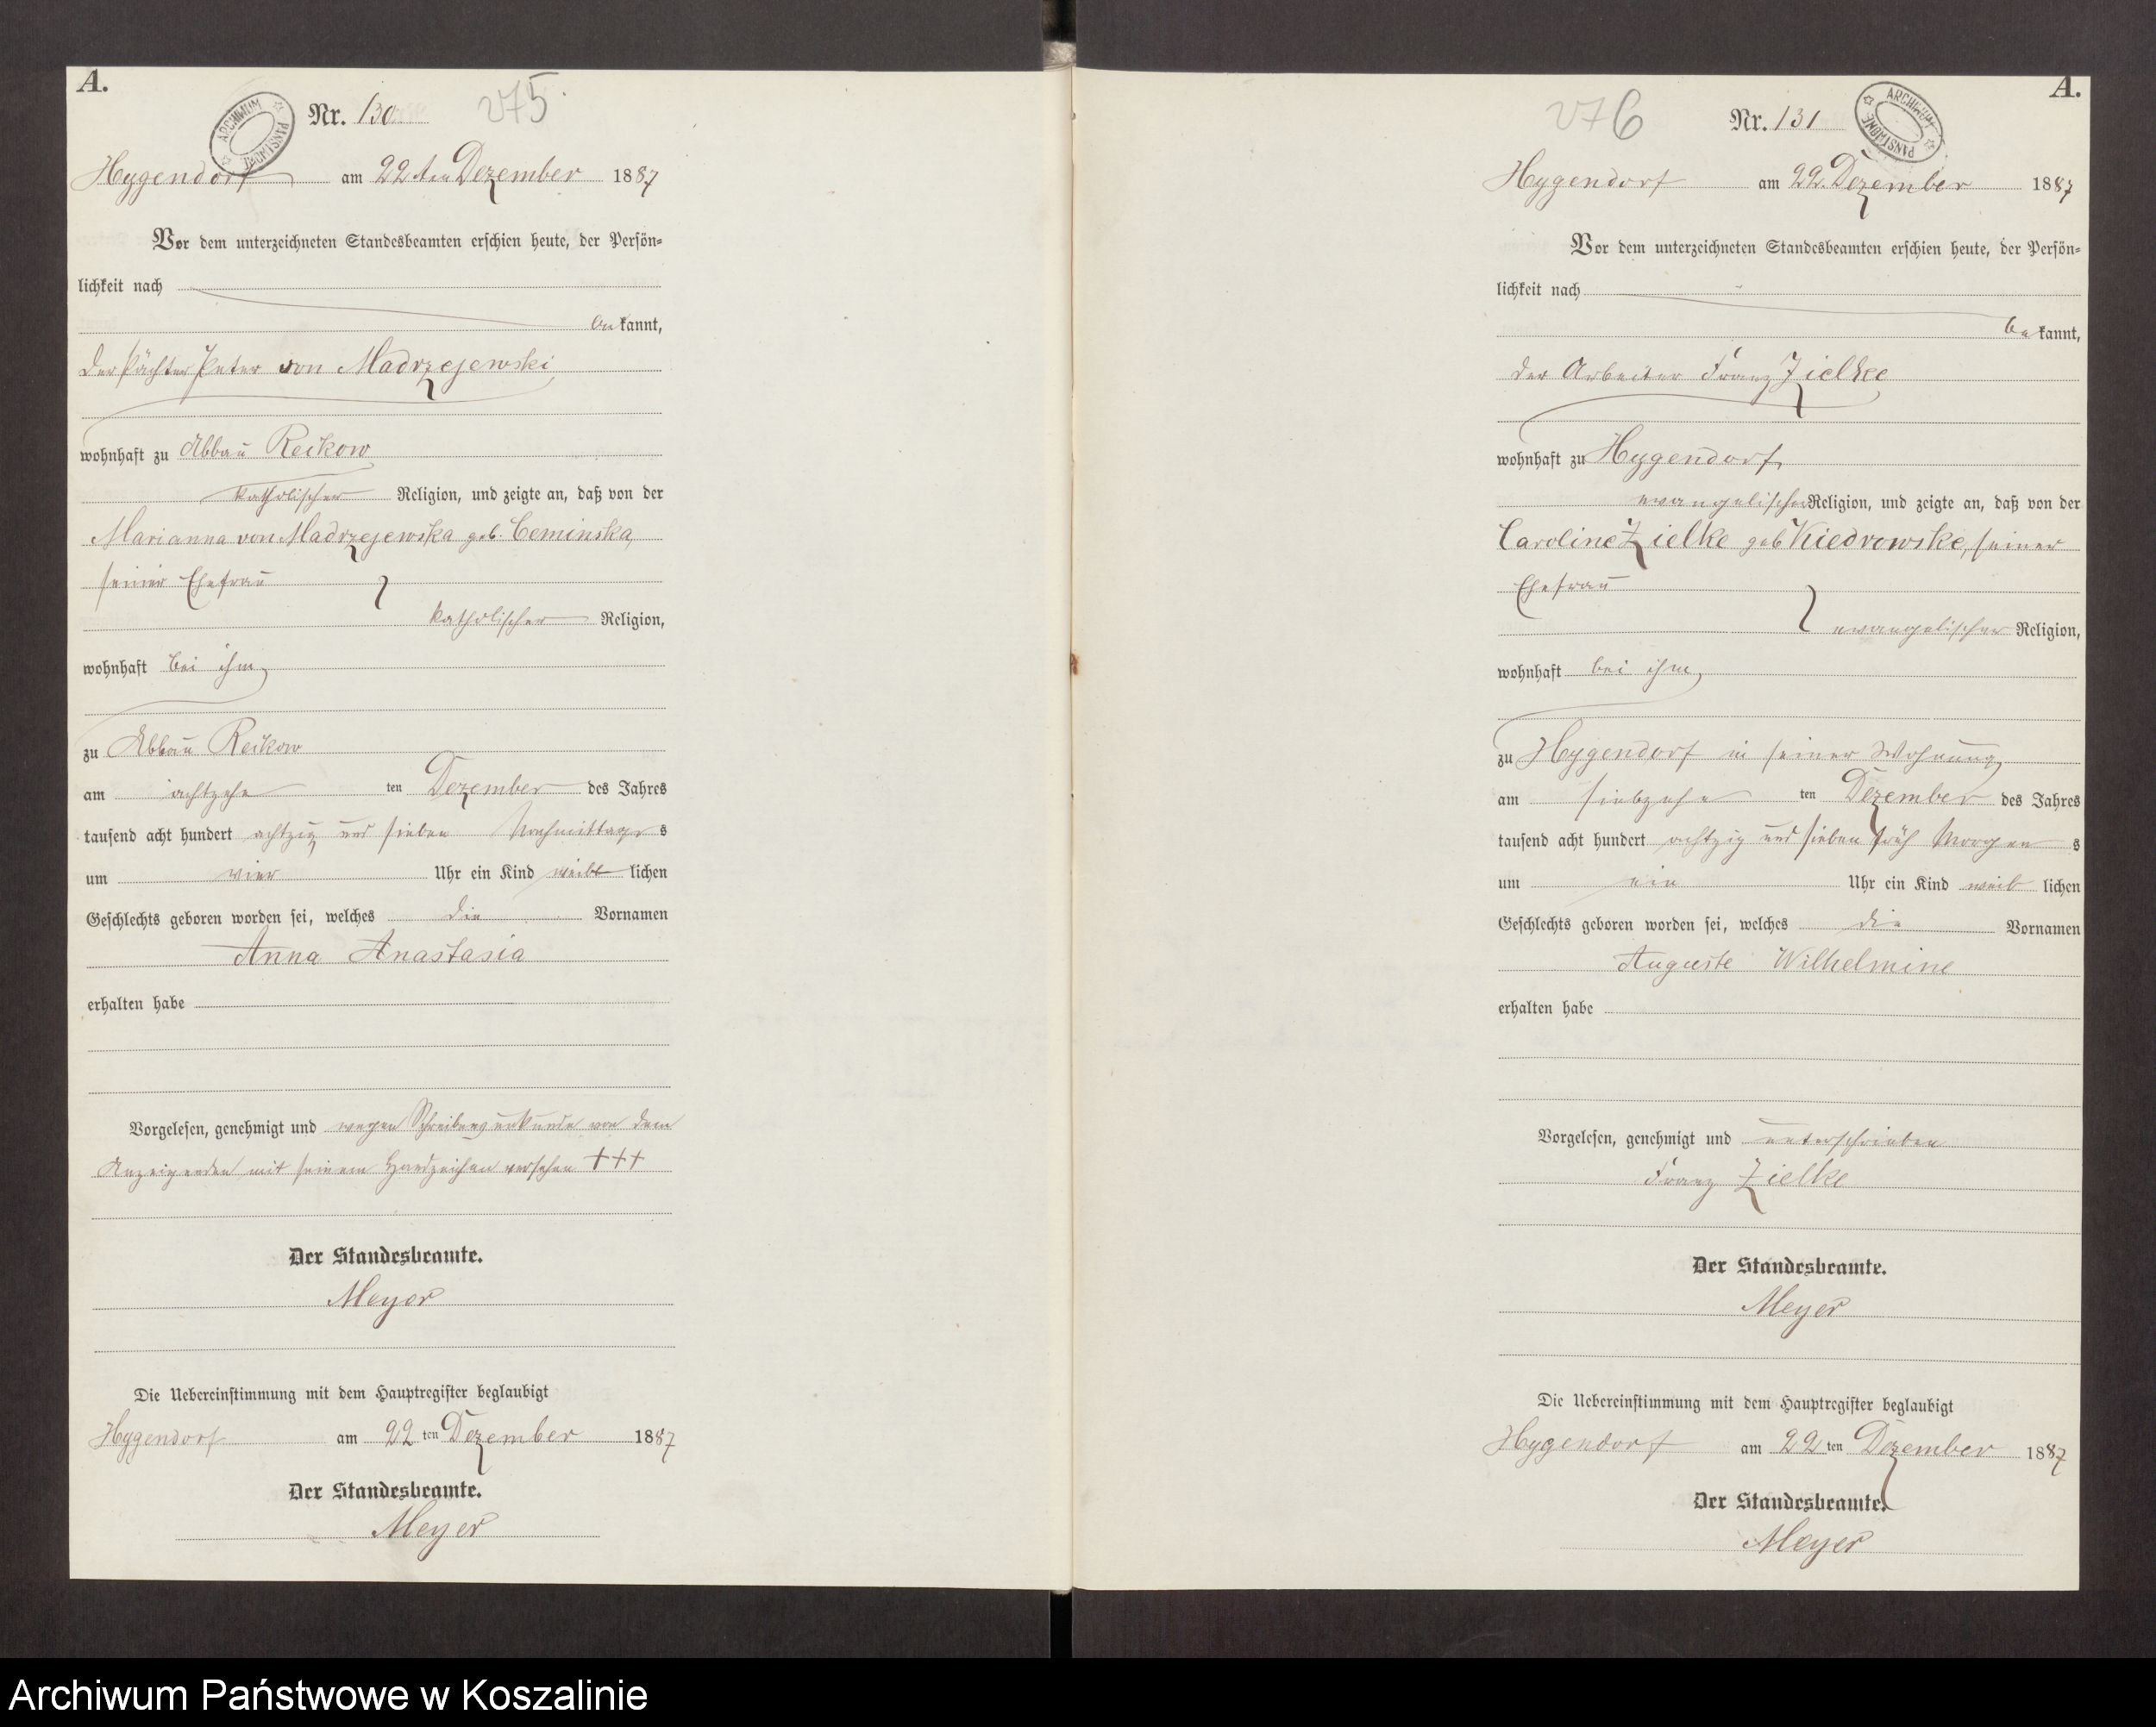 A.
ARCHIWUM PAŃSTWOWE
Nr. 130.
275.
Hygendorf am 22ten Dezember 1887
Vor dem unterzeichneten Standesbeamten erschien heute, der Persön-
lichkeit nach
bekannt,
der Pächter Peter von Madrzejewski
wohnhaft zu Abbau Reckow
katholischer Religion, und zeigte an, daß von der
Marianna von Madrzejewska geb. Ceminska,
seiner Ehefrau
katholischer Religion,
wohnhaft bei ihm,
zu Abbau Reckow
am achtzehn ten Dezember des Jahres
tausend acht hundert achtzig und sieben Nachmittags
um vier Uhr ein Kind weiblichen
Geschlechts geboren worden sei, welches die Vornamen
Anna Anastasia
erhalten habe
Vorgelesen, genehmigt und wegen Schreibensunkunde von dem
Anzeigenden mit seinem Handzeichen versehen +++
Der Standesbeamte.
Meyer
Die Uebereinstimmung mit dem Hauptregister beglaubigt
Hygendorf am 22 ten Dezember 1887
Der Standesbeamte.
Meyer
A.
276
Nr. 131
ARCHIWUM PAŃSTWOWE
Hygendorf am 22. Dezember 1887
Vor dem unterzeichneten Standesbeamten erschien heute, der Persön-
lichkeit nach
bekannt,
der Arbeiter Franz Zielke
wohnhaft zu Hygendorf,
evangelischer Religion, und zeigte an, daß von der
Caroline Zielke geb Kiedrowske, seiner
Ehefrau
evangelischer Religion,
wohnhaft bei ihm,
zu Hygendorf in seiner Wohnung,
am siebzehn ten Dezember des Jahres
tausend acht hundert achtzig und sieben früh Morgens
um ein Uhr ein Kind weiblichen
Geschlechts geboren worden sei, welches die Vornamen
Auguste Wilhelmine
erhalten habe
Vorgelesen, genehmigt und unterschrieben
Franz Zielke
Der Standesbeamte.
Meyer
Die Uebereinstimmung mit dem Hauptregister beglaubigt
Hygendorf am 22 ten Dezember 1887
Der Standesbeamte.
Meyer
Archiwum Państwowe w Koszalinie